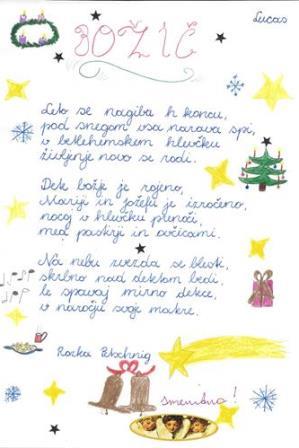 Lucas
BOŽIČ
Leto se nagiba h koncu,
pod snegom vsa narava spi,
v betlehemskem hlevčku
življenje novo se rodi.
Dete božje je rojeno,
Mariji in Jožefu je izročeno,
nocoj v hlevčku prenoči,
med pastirji in ovčicami.
Na nebu zvezda se blesti,
skrbno nad detetom bedi,
le spavaj mirno detece,
v naročju svoje matere.
Rozka Petschnig